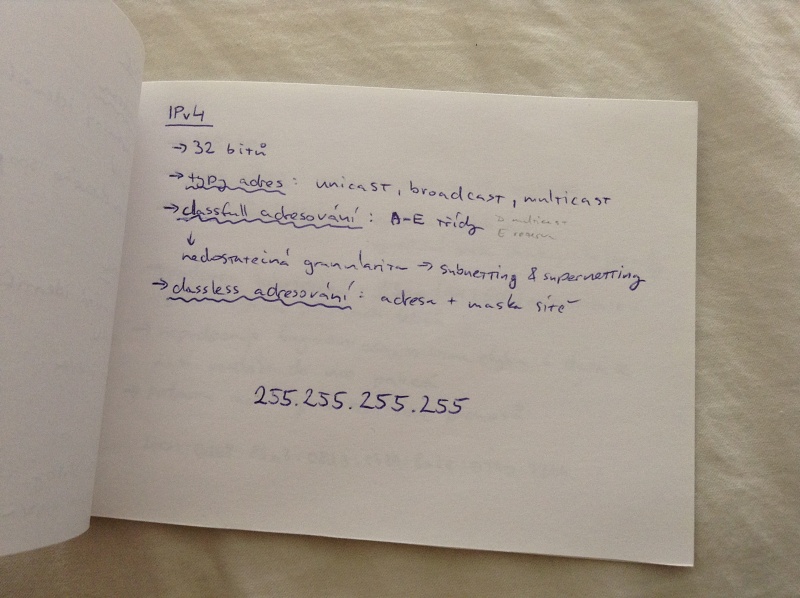 IPv4
→ 32 bitů
→ typy adres: unicast, broadcast, multicast
→ classfull adresování: A-E třídy
D multicast
E
↓
nedostatečná granularita → subnetting & supernetting
→ classless adresování: adresa + maska sítě
255.255.255.255